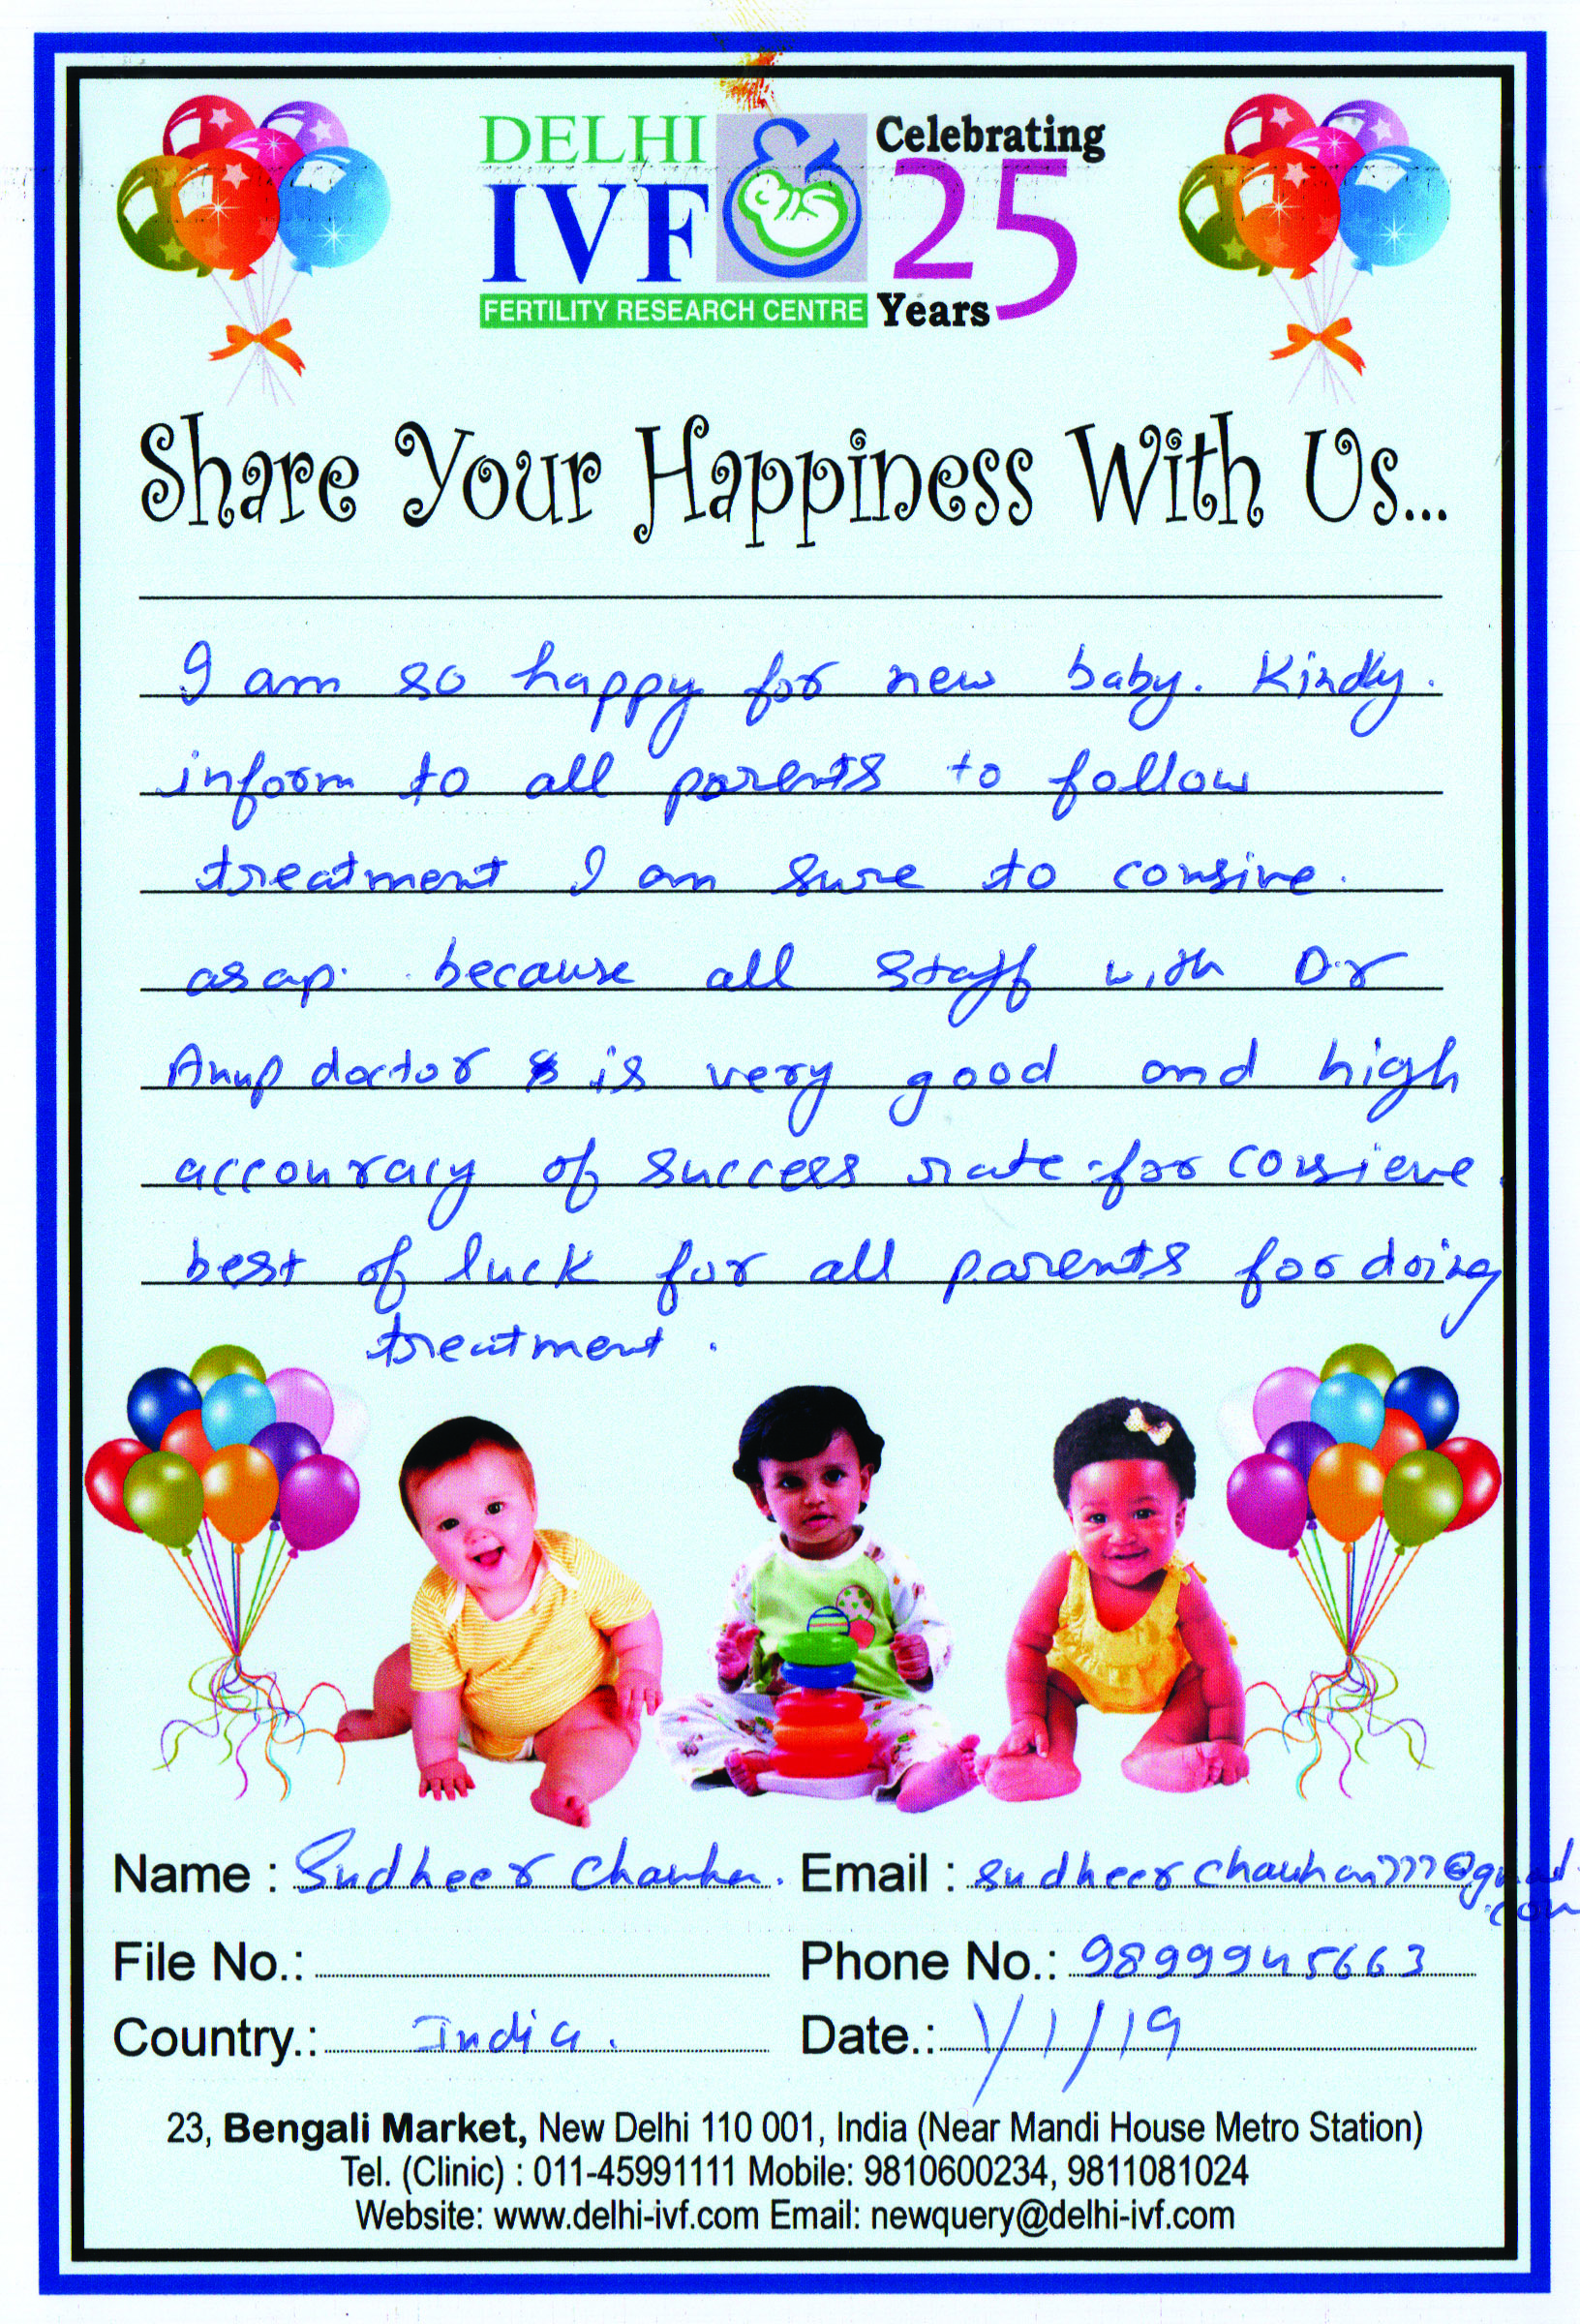 DELHI
IVF
FERTILITY RESEARCH CENTRE
Celebrating
25
Years
Share Your Happiness With Us...
I am so happy for new baby. Kindly.
inform to all parents to follow
treatment I am sure to consive.
asap. because all staff with Dr
Anup doctor is very good and high
accouracy of success rate for consieve.
best of luck for all parents for doing
treatment.
Name : Sudheer Chauhan. Email : sudheerchauhan777@gmail.com
File No.: Phone No.: 9899945663
Country.: India. Date.: 1/1/19
23, Bengali Market, New Delhi 110 001, India (Near Mandi House Metro Station)
Tel. (Clinic) : 011-45991111 Mobile: 9810600234, 9811081024
Website: www.delhi-ivf.com Email: newquery@delhi-ivf.com